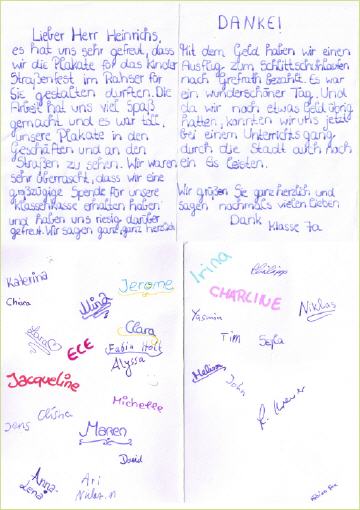 Lieber Herr Heinrichs,
es hat uns sehr gefreut, dass
wir die Plakate für das Kinder
Straßenfest im Rahser für
Sie gestalten durften. Die
Arbeit hat uns viel Spaß
gemacht und es war toll,
unsere Plakate in den
Geschäften und an den
Straßen zu sehen. Wir waren
sehr überrascht, dass wir eine
großzügige Spende für unsere
Klassenkasse erhalten haben
und haben uns riesig darüber
gefreut. Wir sagen ganz, ganz herzlich
DANKE!
Mit dem Geld haben wir einen
Ausflug zum Schlittschuhlaufen
nach Grefrath bezahlt. Es war
ein wunderschöner Tag. Und
da wir noch etwas Geld übrig
hatten, konnten wir uns jetzt
bei einem Unterrichtsgang
durch die Stadt auch noch
ein Eis leisten.
Wir grüßen Sie ganz herzlich und
sagen nochmals vielen lieben
Dank Klasse 7a
Katerina
Chiara
Jerome
Nina
Clara
ECE
Fabia Holt
Alyssa
Jacqueline
Michelle
Jens
Maren
David
Anna-
Lena
Ari
Niklas.n
Irina
Philipp
CHARLINE
Niklas
Yasmin
Tim
Sejla
Melissa
John